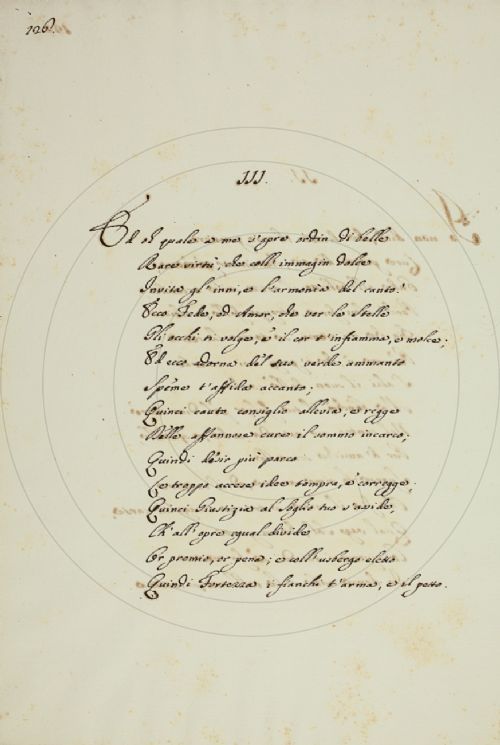 126.
III.
Ed oh quale a me s'apre ordin di belle
Rare virtù, che coll' immagin dolce
Invita gl' inni, e l'armonia del canto!
Ecco Fede, ed Amor, che ver le Stelle
Gli occhi ti volge, e il cor t'infiamma, e molce;
Ed ecco adorna del suo verde ammanto
Speme t'affida accanto;
Quinci cauto consiglio allevia, e regge
Delle affannose cure il sommo incarco;
Quindi desio più parco
Le troppo accese idee tempra, e corregge;
Quinci Giustizia al soglio tuo s'asside,
Ch' all' opre egual divide
Or premio, or pena; e coll' usbergo eletto
Quindi Fortezza i fianchi t'arma, e il petto.